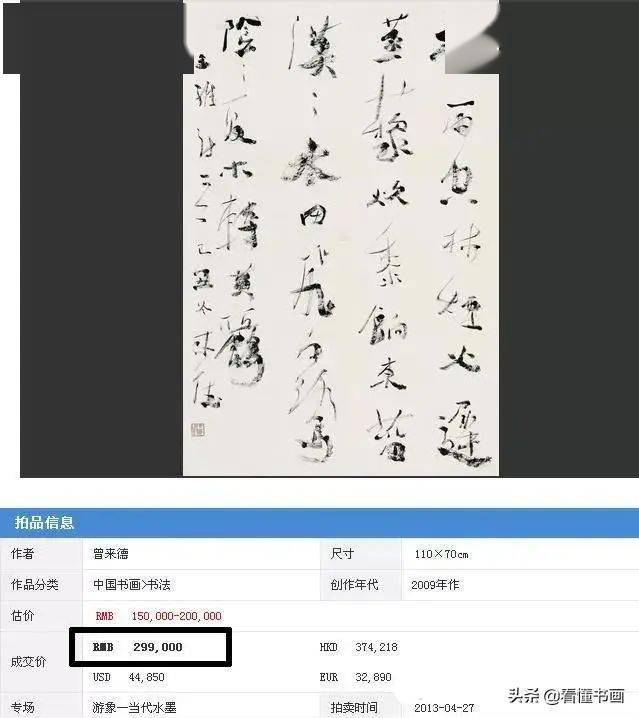 雨空林煙火遲
蒸藜炊黍餉東菑
漠〻水田飛白鷺
陰〻夏木囀黃鸝
王維詩一首己丑冬來德
拍品信息
作者 曾来德 尺寸 110×70cm
作品分类 中国书画>书法 创作年代 2009年作
估价 RMB 150,000-200,000
成交价 RMB 299,000 HKD 374,218
USD 44,850 EUR 32,890
专场 游象—当代水墨 拍卖时间 2013-04-27
头条 @看懂书画